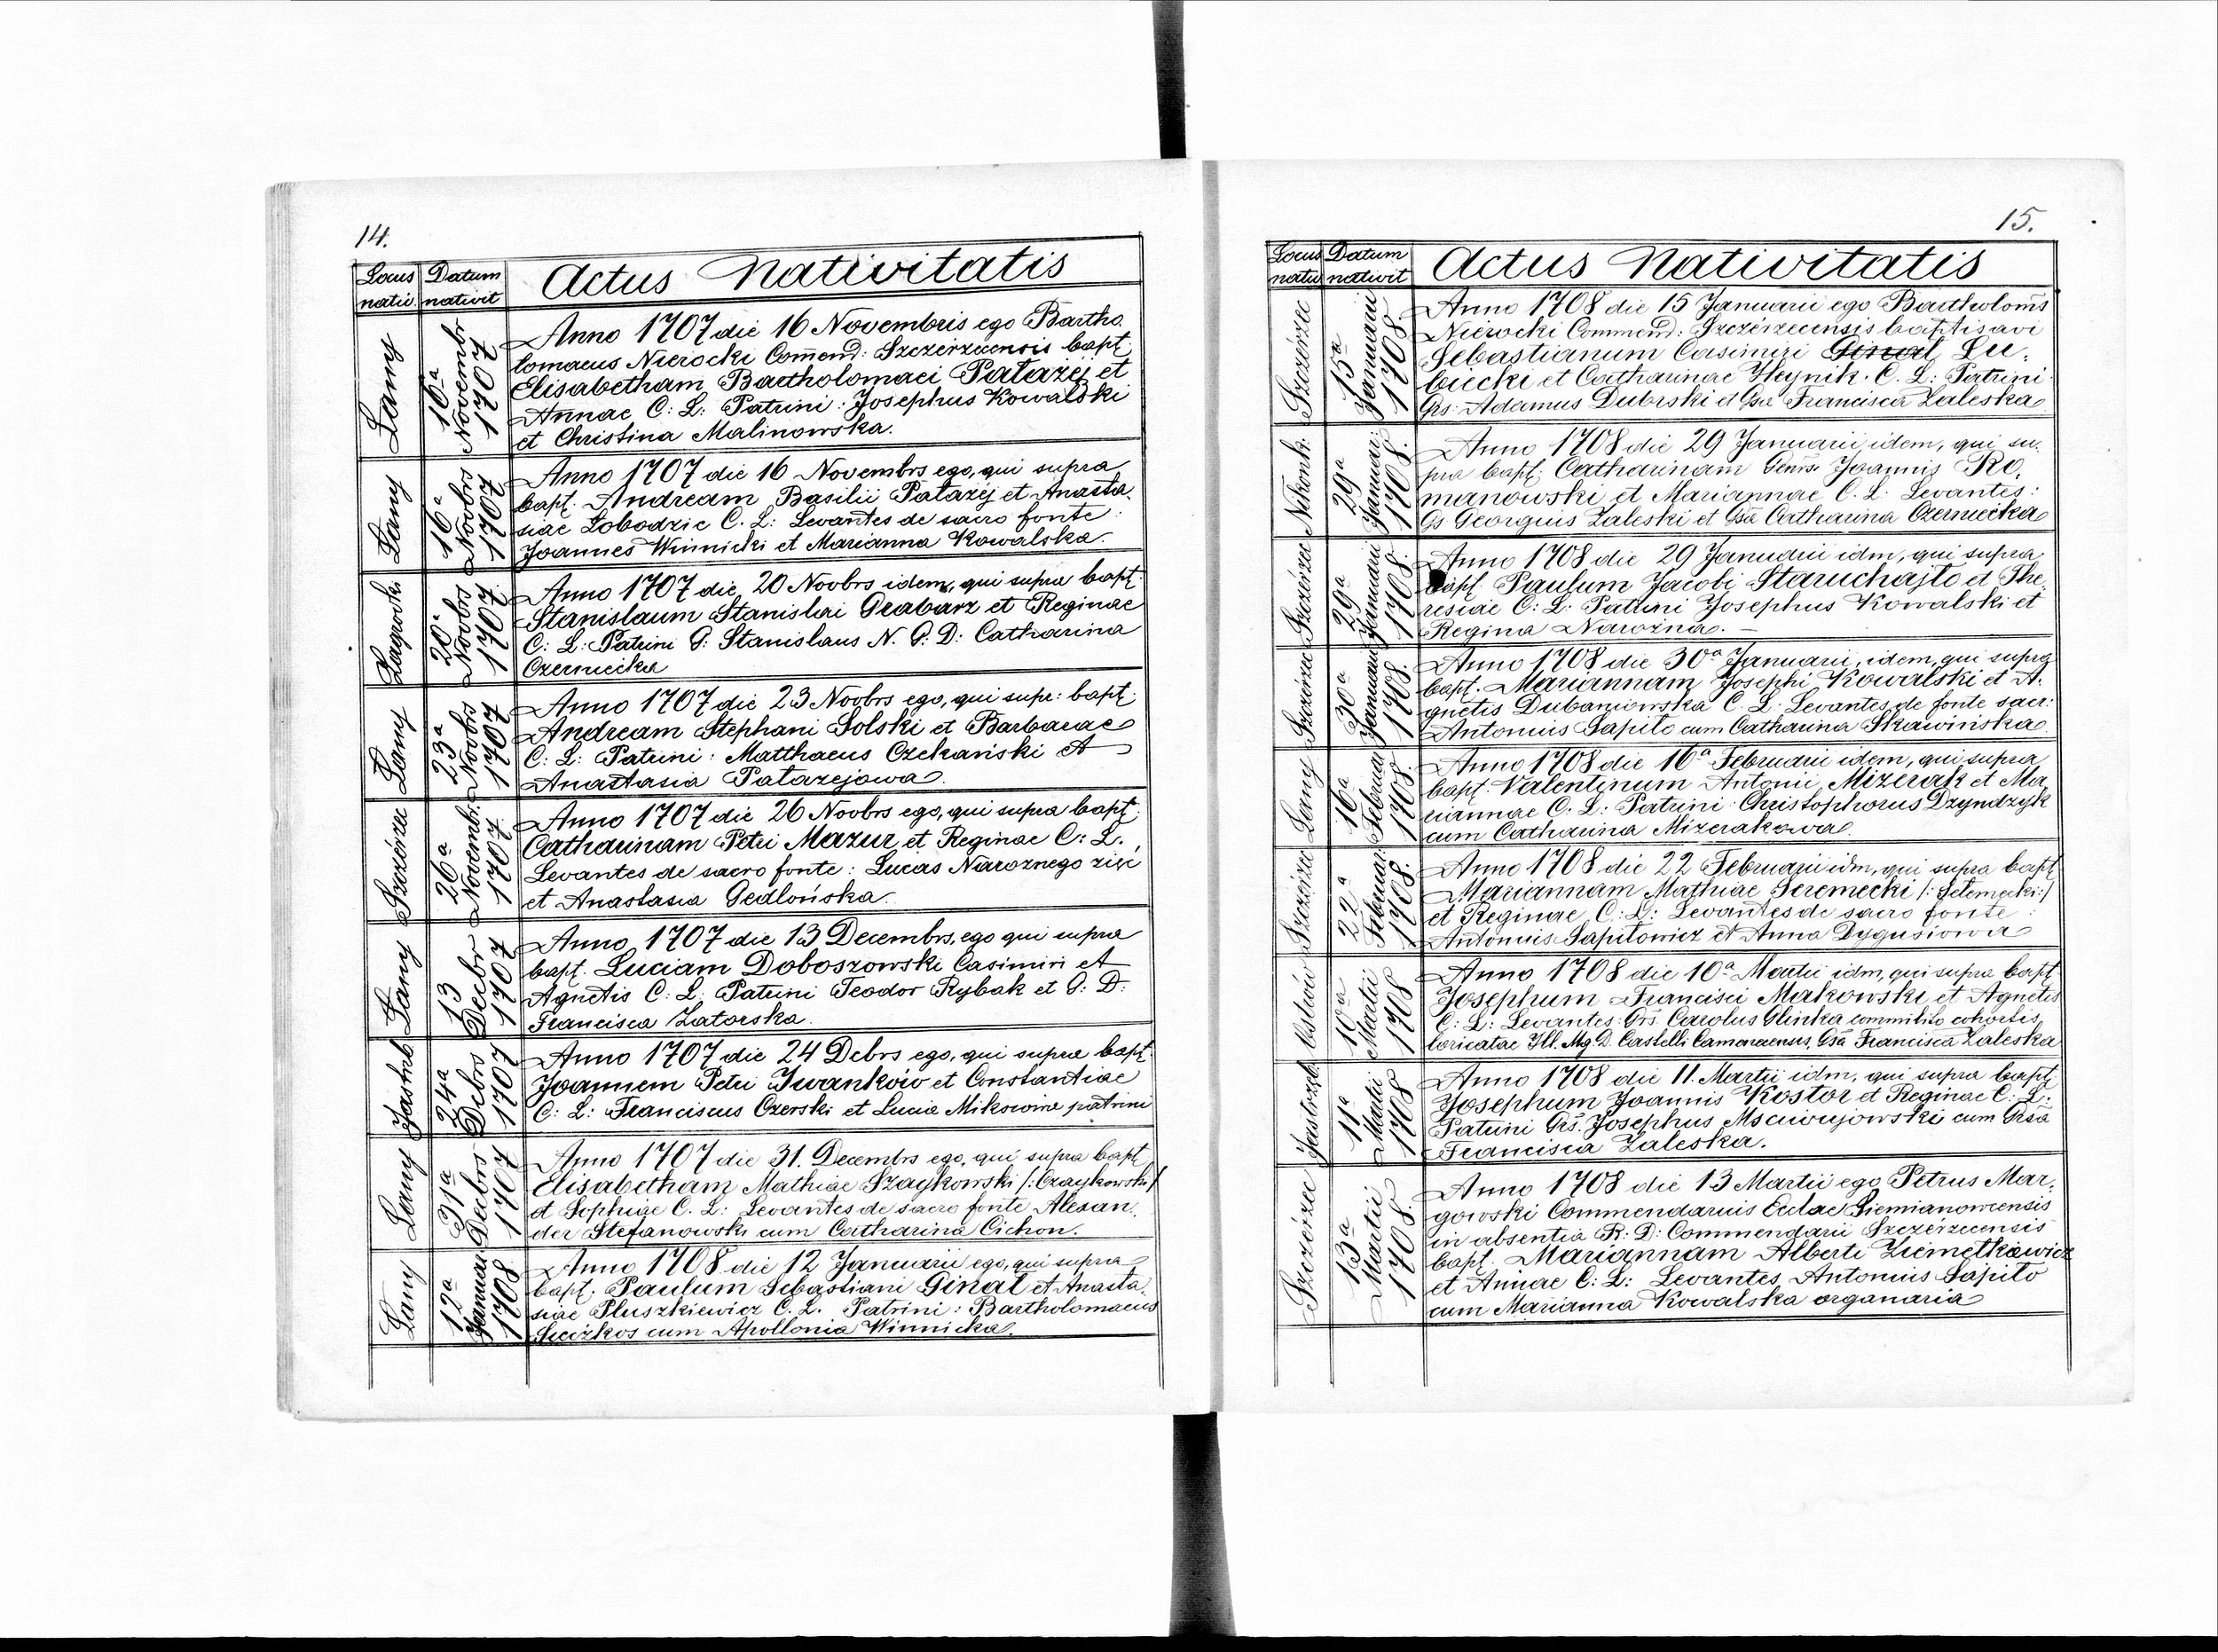 14.
Locus Datum
nativ. nativit
Actus Nativitatis
Łanny
16a Novembr 1707
Anno 1707 die 16 Novembris ego Bartho
lomaeus Nierocki Comend: Szczérzecensis bapt:
Elisabetham Bartholomaei Pałazej et
Annae C: L: Patrini: Josephus Kowalski
et Christina Malinowska.
Łany
16a Novbrs 1707
Anno 1707 die 16 Novembrs ego, qui supra
bapt: Andream Basilii Pałazéj et Anasta.
siae Łobodzic C. L: Levantes de sacro fonte:
Joannes Winnicki et Marianna Kowalska.
Zagrodki
20a Novbrs 1707
Anno 1707 die 20 Novbrs idem, qui supra bapt:
Stanislaum Stanislai Grabarz et Reginae
C: L: Patrini G: Stanislaus N. G: D: Catharina
Czerniecka
Łany
23a Novbrs 1707
Anno 1707 die 23 Novbrs ego, qui supr: bapt:
Andream Stephani Solski et Barbarae
C: L: Patrini: Matthaeus Czekański et
Anastasia Pałazejowa.
Szczérzec
26a Novemb: 1707
Anno 1707 die 26 Novbrs ego, qui supra bapt:
Catharinam Petri Mazur et Reginae C: L.
Levantes de sacro fonte: Lucas Naroznego zięć
et Anastasia Gedlońska.
Łany
13 Decbr 1707
Anno 1707 die 13 Decembrs, ego qui supra
bapt. Luciam Doboszowski Casimiri et
Agnetis C: L: Patrini Teodor Rybak et G: D:
Francisca Zatorska.
Jastrb
24a Debrs 1707
Anno 1707 die 24 Debrs ego, qui supra bapt:
Joannem Petri Iwanków et Constantiae
C: L: Franciscus Czerski et Lucia Mikowina patrini
Łany
31a Decbrs 1707
Anno 1707 die 31. Decembrs ego, qui supra bapt
Elisabetham Mathiae Szaykowski /:Czaykowski:/
et Sophiae C. L: Levantes de sacro fonte Alexan.
der Stefanowski cum Catharina Cichon.
Łany
12a Januar 1708
Anno 1708 die 12 Januarii ego, qui supra
bapt. Paulum Sebastiani Ginał et Anasta.
siae Pluszkiewicz C. L. Patrini: Bartholomaeus
Sieczkos cum Apollonia Winnicka.
15.
Locus Datum
nativ nativit
Actus Nativitatis
Szczérzec
15a Januarii 1708
Anno 1708 die 15 Januarii ego Bartholoms
Nierocki Commend: Szczérzecensis baptisavi
Sebastianum Casimiri Ginał Lu.
biecki et Catharinae Heynik. C. L: Patrini
Grs: Adamus Dubrski et Gsa Francisca Zaleska
Nikonk:
29a Januar: 1708.
Anno 1708 die 29 Januarii idem, qui su.
pra bapt: Catharinam Genrsi Joannis Ro.
manowski et Mariannae C. L: Levantes:
Gs Georgius Zaleski et Gsa Catharina Czerniecka
Szczérzec
29a Januarii 1708.
Anno 1708 die 29 Januarii idm, qui supra
bapt Paulum Jacobi Staruchajło et The
resiae C: L: Patrini Josephus Kowalski et
Regina Narożna. —
Szczérzec
30a Januarii 1708.
Anno 1708 die 30a Januarii, idem, qui supra
bapt. Mariannam Josephi Kowalski et A.
gnetis Dubaniowska C. L: Levantes de fonte sacr:
Antonius Sapito cum Catharina Skawińska
Łany
16a Februar 1708.
Anno 1708 die 16a Februarii idem, qui supra
bapt Valentinum Antonii Mizerak et Ma
riannae C. L: Patrini: Christophorus Dzyndzyk
cum Catharina Mizerakowa.
Szczérzec
22a Februar: 1708.
Anno 1708 die 22 Februarii idm, qui supra bapt
Mariannam Mathiae Seremecki /:Selemecki:/
et Reginae C: L: Levantes de sacro fonte:
Antonius Sapitowicz et Anna Dygusiowa
Ostrów
10a Martii 1708
Anno 1708 die 10a Martii idm, qui supra bapt
Josephum Francisci Makowski et Agnetis
C: L: Levantes: Grs Carolus Glinka commilito cohortis
loricatae Ill. Mg. D. Castelli Camenaensis, Gsa Francisca Zaleska
Jastrzb
11a Martii 1708
Anno 1708 die 11. Martii idm, qui supra bapt:
Josephum Joannis Kostor et Reginae C: L:
Patrini Grs. Josephus Mściwujowski cum Grsa
Francisca Zaleska.
Szczérzec
13a Martii 1708.
Anno 1708 die 13 Martii ego Petrus Mar.
gowski Commendarius Eclae Siemianowcensis
in absentia R: D: Commendarii Szczérzecensis
bapt. Mariannam Alberti Ziemetkiewicz
et Annae C: L: Levantes Antonius Sapito
cum Marianna Kowalska organaria